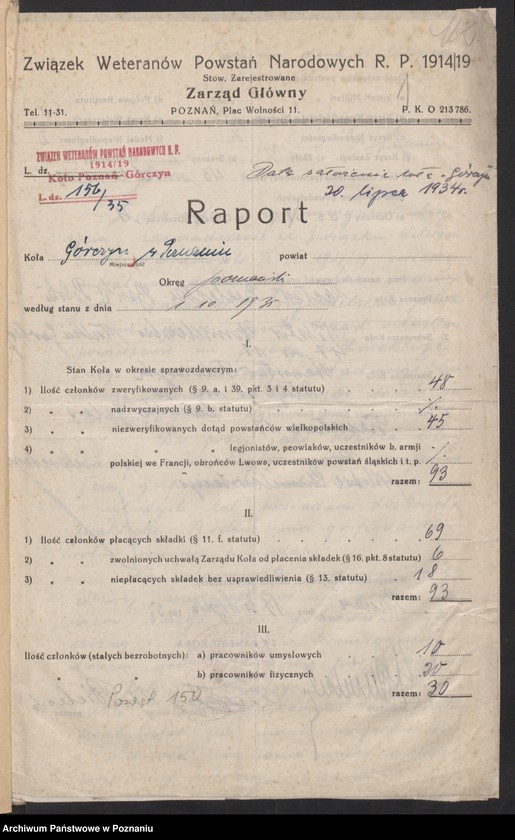 Związek Weteranów Powstań Narodowych R. P. 1914/19
Stow. Zarejestrowane
Zarząd Główny
Tel. 11-31. POZNAŃ, Plac Wolności 11. P. K. O 213 786.
ZWIĄZEK WETERANÓW POWSTAŃ NARODOWYCH R. P.
1914/19
L. dz. Koło Poznań-Górczyn
L. dz. 156/35
Data założenia koła - Górczyn
20. lipca 1934r.
Raport
Koła Górczyn w Poznaniu powiat
Miejscowość
Okręg poznański
według stanu z dnia 1 10. 1935
I.
Stan Koła w okresie sprawozdawczym:
1) Ilość członków zweryfikowanych (§ 9. a. i 39. pkt. 3 i 4 statutu) . . . 48
2) " " nadzwyczajnych (§ 9. b. statutu) . . . . ./.
3) " " niezweryfikowanych dotąd powstańców wielkopolskich . . 45
4) " " " legjonistów, peowiaków, uczestników b. armji
polskiej we Francji, obrońców Lwowa, uczestników powstań śląskich i t. p. ./.
razem: 93
II.
1) Ilość członków płacących składki (§ 11. f. statutu) . . . . . . 69
2) " " zwolnionych uchwałą Zarządu Koła od płacenia składek (§ 16. pkt. 8 statutu) 6
3) " " niepłacących składek bez usprawiedliwienia (§ 13. statutu) . . 18
razem: 93
III.
Ilość członków (stałych bezrobotnych): a) pracowników umysłowych . . . 10
" " b) pracowników fizycznych . . . 20
razem: 30
150
Archiwum Państwowe w Poznaniu